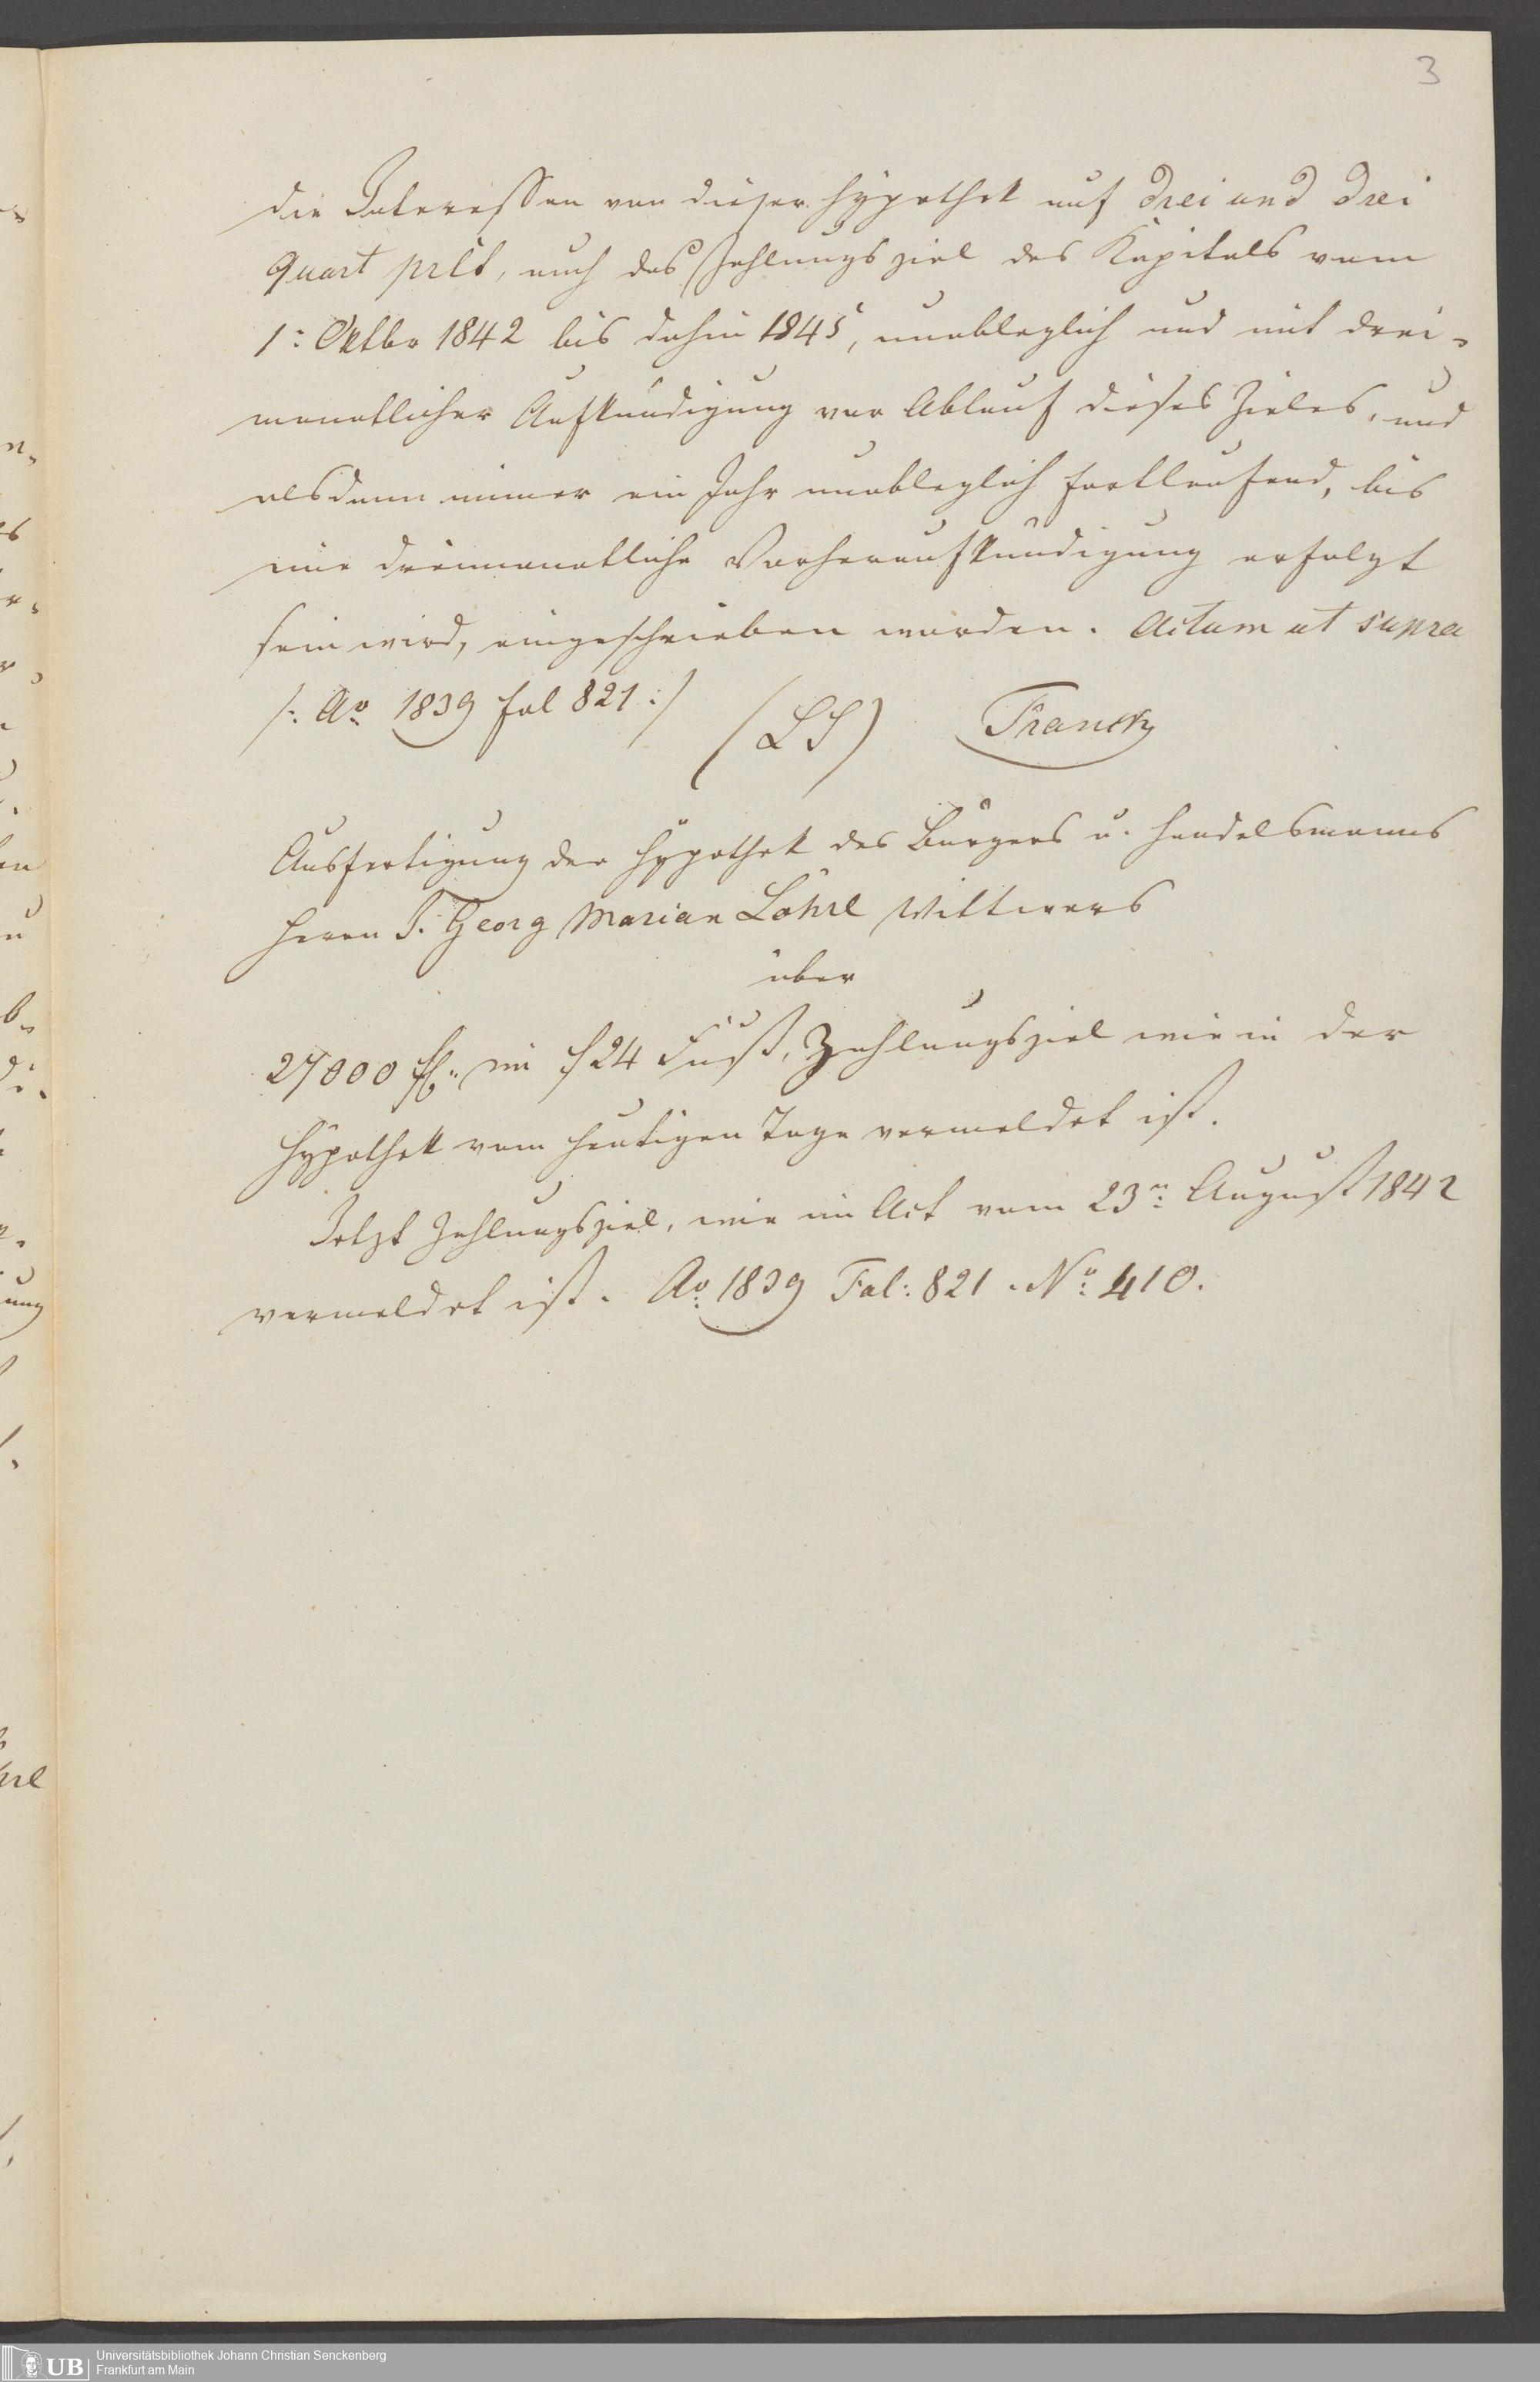 3
die Interessen von dieser Hypothek auf drei und drei
quart prCt, auch das Zahlungsziel des Kapitals vom
1: Oktbr 1842 bis dahin 1845, unableglich und mit drei-
monatlicher Aufkündigung vor Ablauf dieses Zieles, und
alsdann immer ein Jahr unableglich fortlaufend, bis
eine dreimonatliche Vorheraufkündigung erfolgt
sein wird, eingeschrieben worden. Actum ut supra
/: Ao 1839 fol 821 :/ (LS) Franck
Ausfertigung der Hypothek des Bürgers u. Handelsmanns
Herrn J. Georg Marian Löhrl Wittwers
über
27000 fl: im f 24 Fuß, Zahlungsziel wie in der
Hypothek vom heutigen Tage vermeldet ist.
Jetzt Zahlungsziel, wie im Act vom 23n August 1842
vermeldet ist. Ao 1839 Fol: 821 . No 410.
UB Universitätsbibliothek Johann Christian Senckenberg
Frankfurt am Main